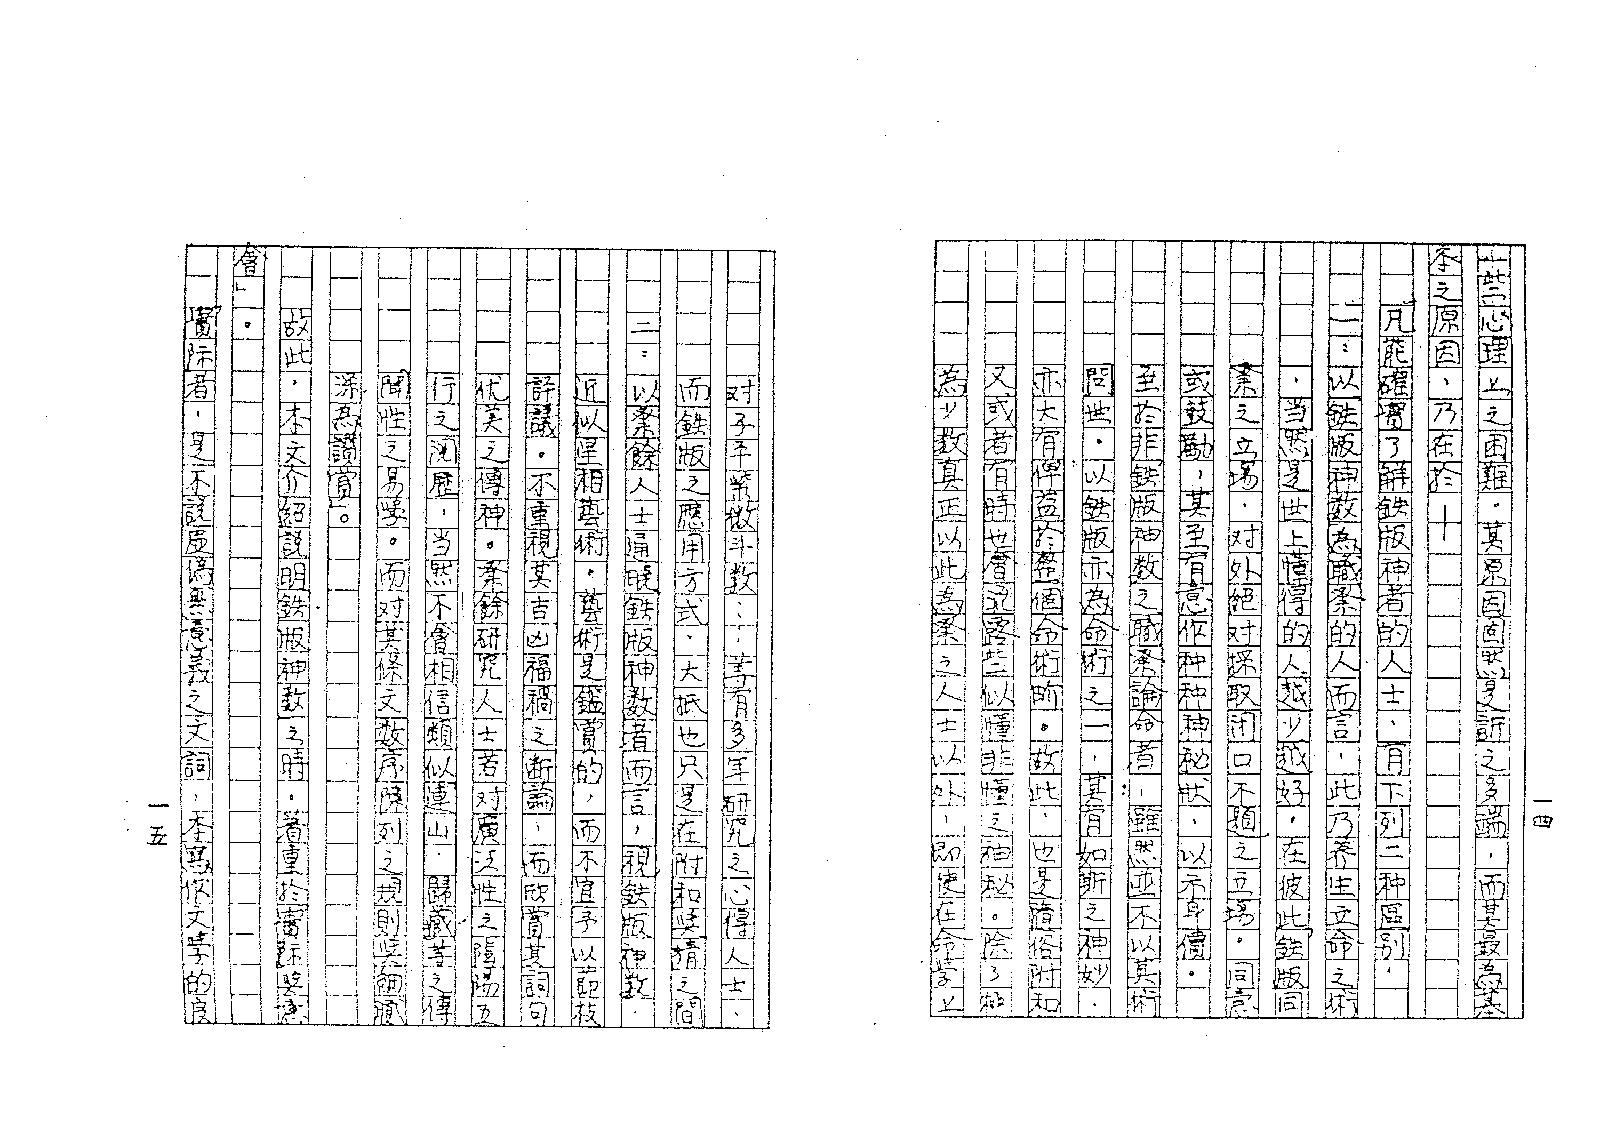 一四
一些心理上之困難。其原因固然是訴之多端，而其最為基
本之原因，乃在於—
凡能確實了解鉄版神者的人士，有下列二种區別，
一：以鉄版神数為職業的人而言，此乃养生立命之術
，当然是世上懂得的人越少越好，在彼此鉄版同
業之立場，对外絕对採取闭口不題之立場。同意
或鼓勵，甚至有意作种种神秘狀，以示身價。
至於非鉄版神数之職業論命者，雖然並不以其術
問世，以鉄版亦為命術之一，其有如斯之神妙，
亦大有俾益於整個命術畍。故此，也是隨俗附和
又或者有時也會況露些似懂非懂之神秘。除了
為少数真正以此為業之人士以外，即使在命学上
对子平紫微斗数…等有多年研究之心得人士，
而鉄版之應用方式，大抵也只是在附和與猜之間
二：以業餘人士通曉鉄版神数者而言，視鉄版神数，
近似星相藝術，藝術是鑑賞的，而不宜予以節枝
評議。不重視其吉凶福禍之断論，而欣賞其詞句
优美之傳神。業餘研究人士若对廣泛性之陰陽五
行之沉歷，当然不會相信類似連山，歸藏等之傳
聞性之易学。而对其條文数序陳列之規則與細膩
深為讚賞」。
故此，本文介紹説明鉄版神数之時，著重於實际與意
會」。
實际者，是不說虛偽無意義之文詞，本寫作文学的良
一五